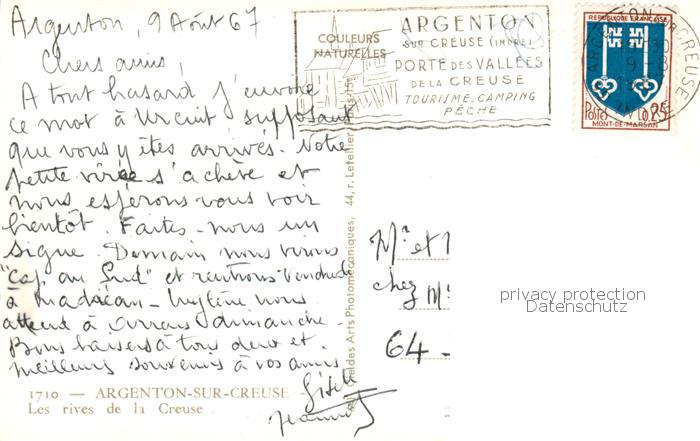 Argenton, 9 Août 67
Chers amis,
A tout hasard j'envoie
ce mot à Urcuit supposant
que vous y êtes arrivés. Notre
petite virée s'achève et
nous espérons vous voir
bientôt. Faites-nous un
signe. Demain nous virons
"Cap au Sud" et rentrons Vendredi
à - nous
attend à dimanche -
Bons baisers à tous deux et
meilleurs souvenirs à vos amis
Gisèle
1710 — ARGENTON-SUR-CREUSE -
Les rives de la Creuse
COULEURS
NATURELLES
des Arts Photomécaniques, 44, r. Letellier, Paris-15e
ARGENTON
SUR CREUSE (INDRE)
PORTE DES VALLÉES
DE LA CREUSE
TOURISME.CAMPING
PÊCHE
ARGENTON SUR CREUSE
REPUBLIQUE FRANÇAISE
Postes 0,25
MONT-DE-MARSAN
Mr et
chez
64 -
privacy protection
Datenschutz